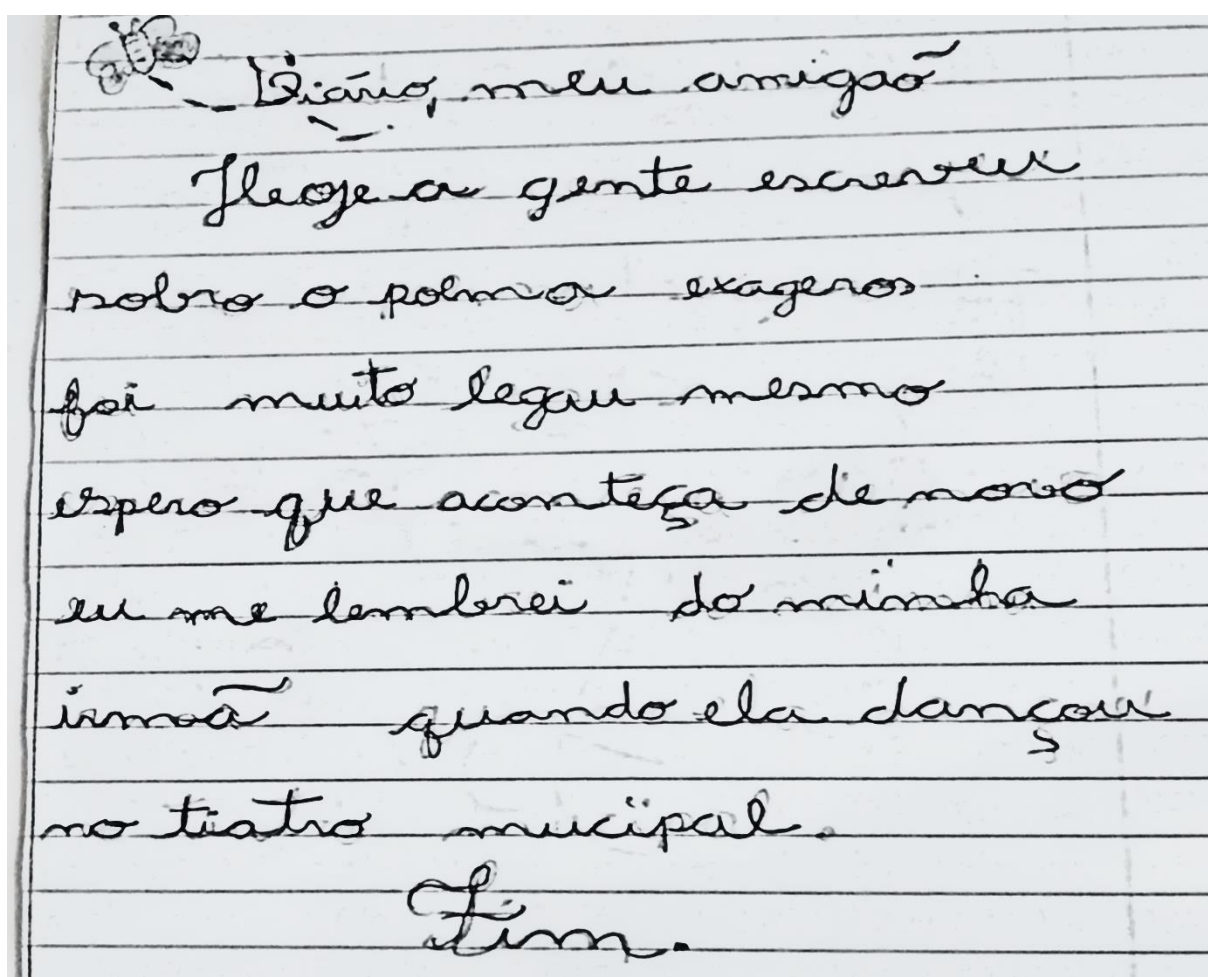 Diário, meu amigaõ
Hoje a gente escreveu
sobro o poema exageros
foi muito legau mesmo
espero que aconteça de novo
eu me lembrei do minha
irmoã quando ela dançou
no tiatro mucipal.
Fim.